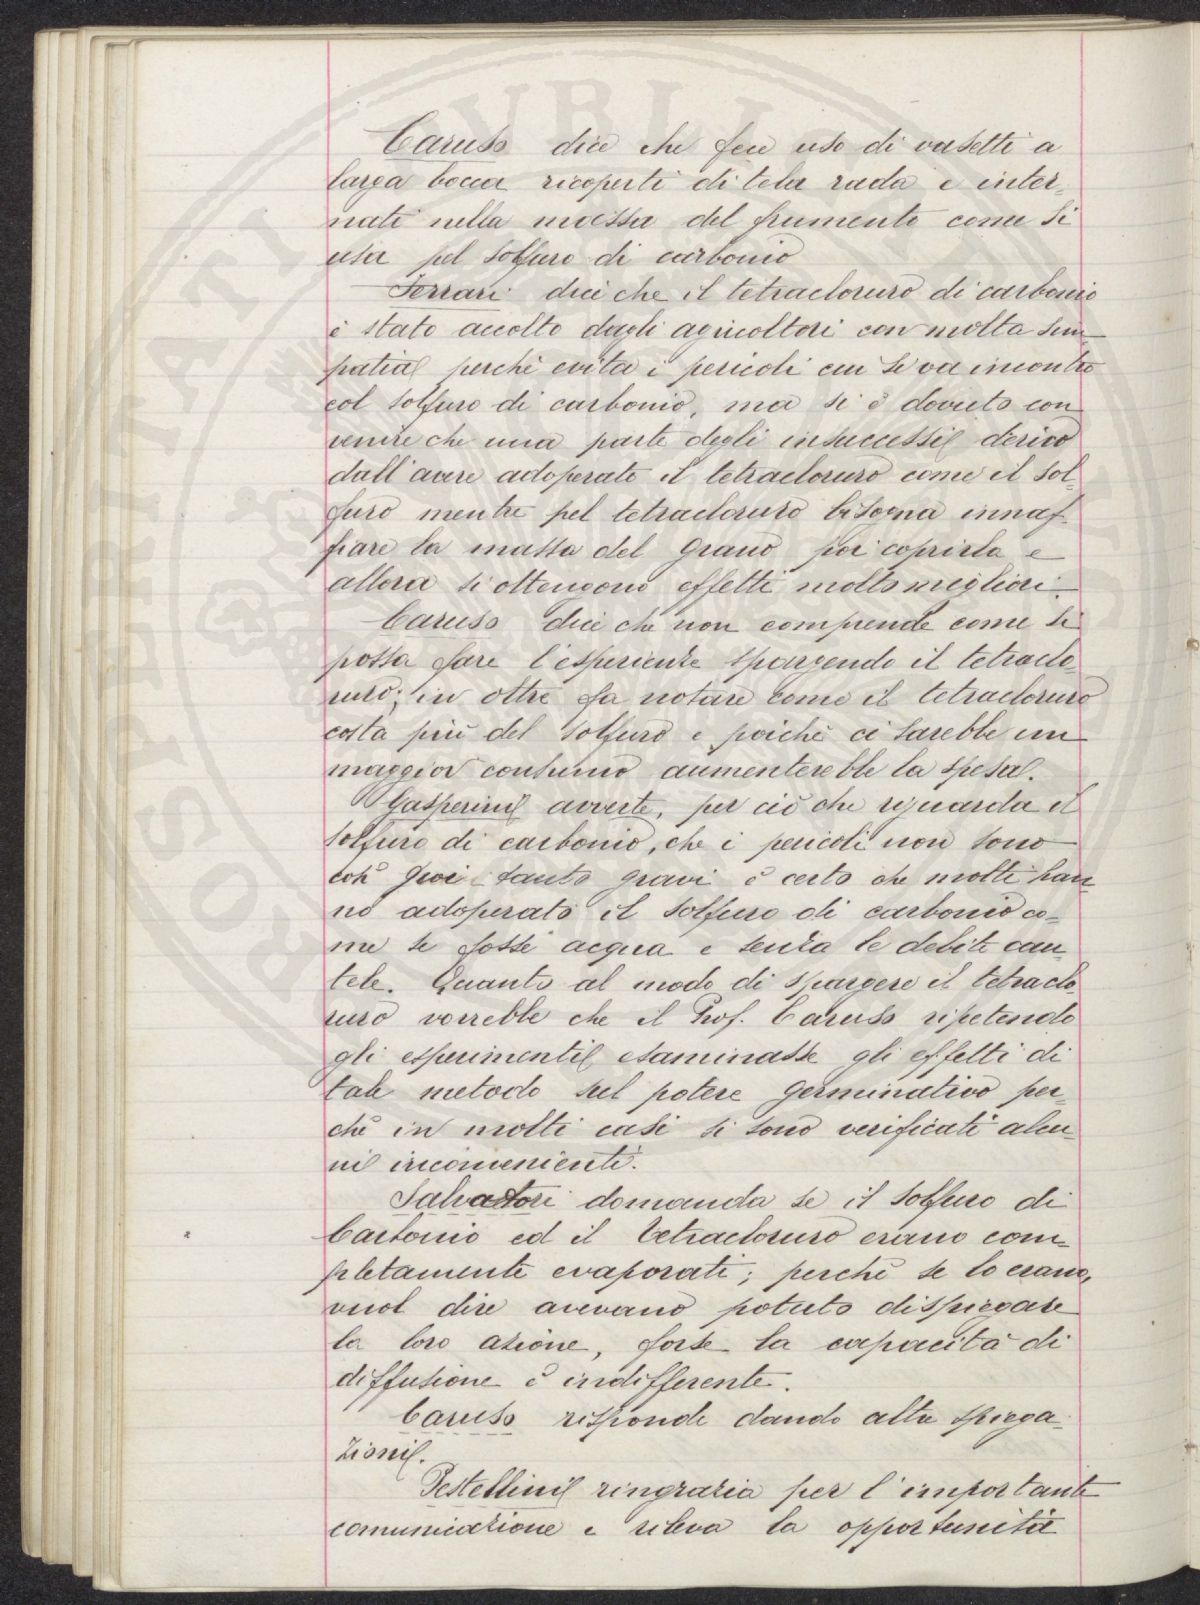 Caruso dice che fece uso di vasetti a
larga bocca ricoperti di tela rada e inter-
nati nella massa del frumento come si
usa pel solfuro di carbonio
Ferrari dice che il tetracloruro di carbonio
è stato accolto dagli agricoltori con molta sim-
patia perchè evita i pericoli cui si va incontro
col solfuro di carbonio, ma si è dovuto con
venire che una parte degli insuccessi derivò
dall'avere adoperato il tetracloruro come il sol-
furo mentre pel tetracloruro bisogna innaf-
fiare la massa del grano poi coprirla e
allora si ottengono effetti molto migliori.
Caruso dice che non comprende come si
possa fare l'esperienze spargendo il tetraclo-
ruro; in oltre fa notare come il tetracloruro
costa più del solfuro e poichè ci sarebbe un
maggior consumo aumenterebbe la spesa.
Gasperini avverte, per ciò che riguarda il
solfuro di carbonio, che i pericoli non sono
poi tanto gravi è certo che molti han
no adoperato il solfuro di carbonio co-
me se fosse acqua e senza le debite cau
tele. Quanto al modo di spargere il tetraclo-
ruro vorrebbe che il Prof. Caruso ripetendo
gli esperimenti esaminasse gli effetti di
tale metodo sul potere germinativo per-
chè in molti casi si sono verificati alcu-
ni inconvenienti.
Salvatori domanda se il solfuro di
Carbonio ed il tetracloruro erano com-
pletamente evaporati; perchè se lo erano,
vuol dire avevano potuto dispiegare
la loro azione, forse la capacità di
diffusione è indifferente.
Caruso risponde dando altre spiega-
zioni.
Pestellini ringrazia per l'importante
comunicazione e rileva la opportunità
VBLI